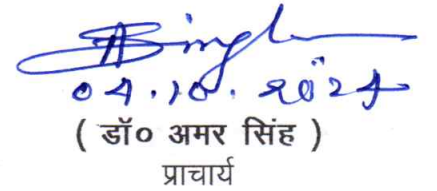 ASingh
04.10.2024
( डॉ० अमर सिंह )
प्राचार्य